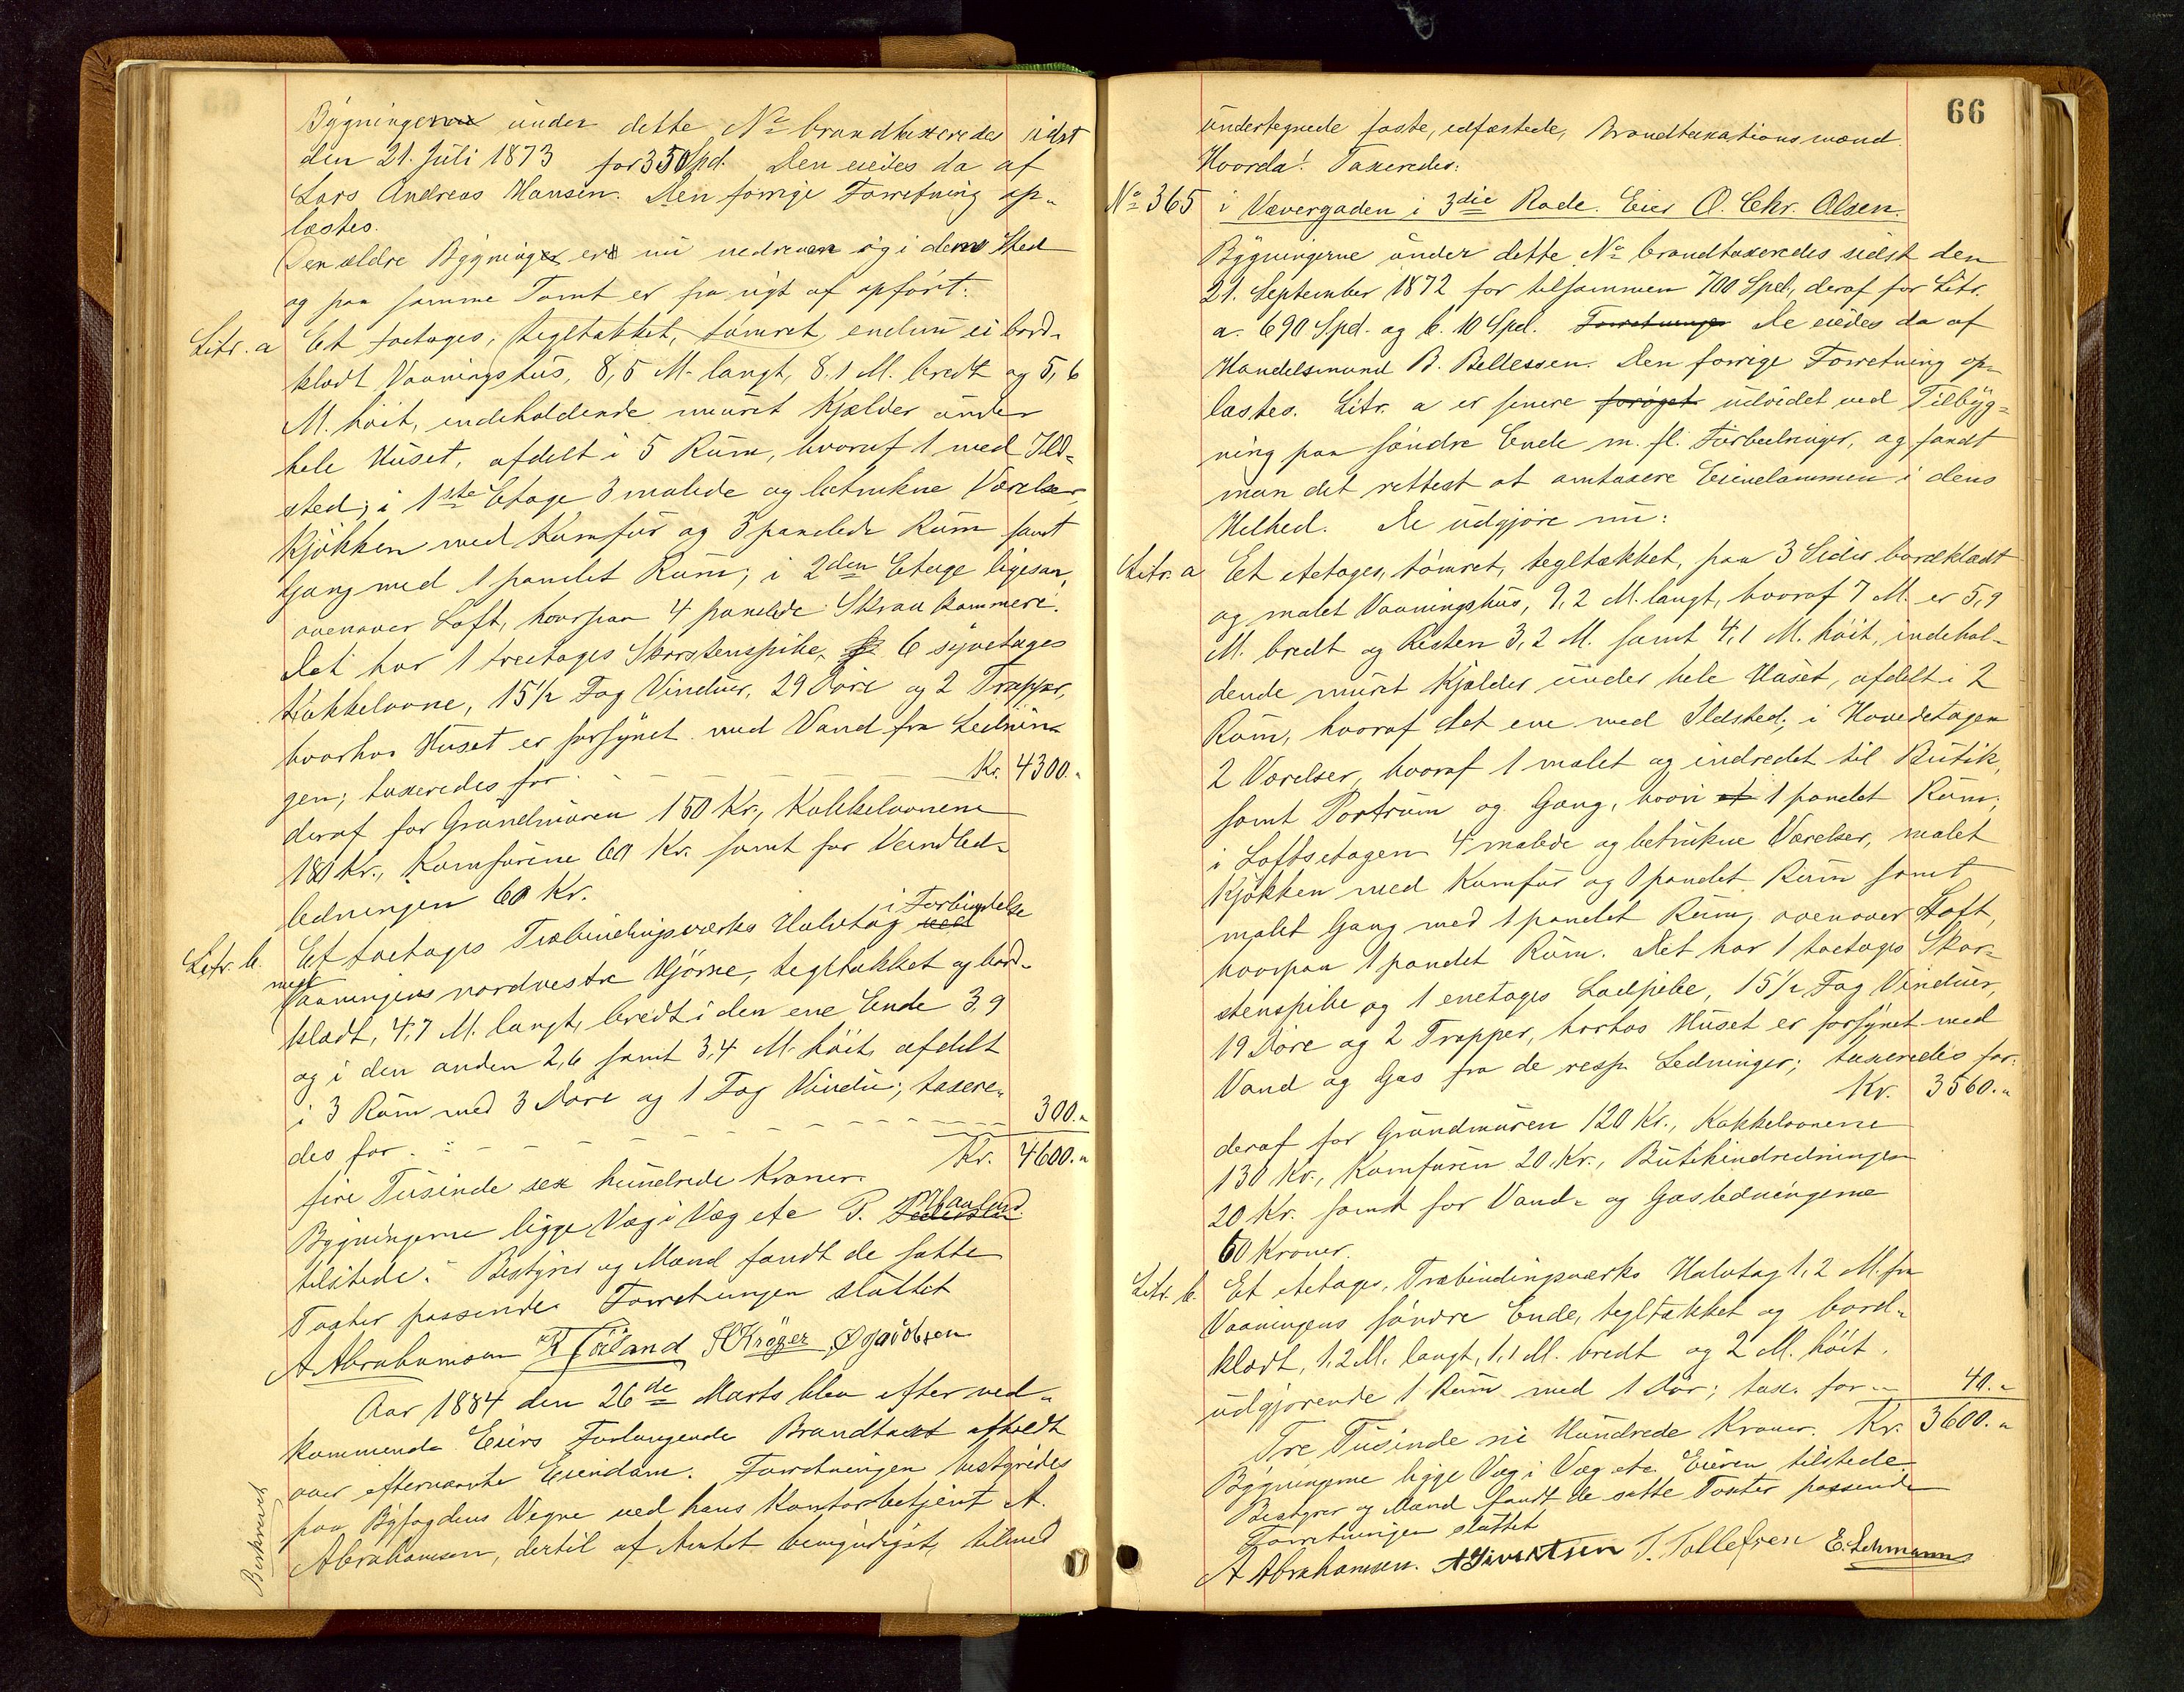 Bygningen under dette No brandtaxeredes sidst
den 21. Juli 1873 for 350 Spd. Den eiedes da af
Lars Andreas Hansen. Den forrige Forretning op-
læstes.
Den ældre Bygning er nu nedreven og i dens Sted
og paa samme Tomt er fra nyt af opført:
Litr. a Et toetages, tegltækket, tømret endnu ei bord-
klædt Vaaningshus, 8,5 M. langt, 8.1 M. bredt og 5,6
M. høit, indeholdende muret Kjælder under
hele Huset, afdelt i 5 Rum, hvoraf 1 med Ild-
sted; i 1ste Etage 3 malede og betrukne Værelser,
Kjøkken med Komfur og 3 panelede Rum samt
Gang med 1 panelet Rum; i 2den Etage ligesaa,
ovenover Loft, hvorpaa 4 panelede Skraakammere.
Det har 1 treetages Skorstenspibe, 6 syvetages
Kakkelovne, 15 1/2 Fag Vinduer, 29 Døre og 2 Trapper,
hvorhos Huset er forsynet med Vand fra Lednin-
gen; taxeredes for - - - Kr. 4300.-
deraf for Grundmuren 150 Kr., Kakkelovnene
180 Kr., Komfurene 60 Kr. samt for Vandled-
ledningen 60 Kr.
Litr. b. Et toetages Træbindingsværks Halvtag ved i Forbindelse
med Vaaningens nordvestre Hjørne, tegltækket og bord-
klædt, 4,7 M. langt, bredt i den ene Ende 3,9
og i den anden 2,6 samt 3,4 M. høit, afdelt
i 3 Rum med 3 Døre og 1 Fag Vindu; taxere-
des for - - - 300.-
fire Tusinde sex hundrede Kroner. Kr. 4600.-
Bygningerne ligge Væg i Væg etc P.
tilstede. Bestyrer og Mænd fandt de satte
Taxter passende. Forretningen sluttet
A Abrahamsen H Kröger
Aar 1884 den 26de Marts blev efter ved-
kommende Eiers Forlangende Brandtaxt afholdt
over efternævnte Eiendom. Forretningen bestyredes
paa Byfogdens Vegne ved hans Kontorbetjent A.
Abrahamsen, dertil af Amtet bemyndiget, tilmed
Beskrevet
66
undertegnede faste, edfæstede, Brandtaxationsmænd.
Hvorda! Taxeredes:
No 365 i Vævergaden i 3die Rode. Eier O. Chr. Olsen.
Bygningerne under dette No brandtaxeredes sidst den
21. September 1872 for tilsammen 700 Spd., deraf for Litr.
a. 690 Spd. og b. 10 Spd. Forretninge De eiedes da af
Handelsmand B. Bellessen. Den forrige Forretning op-
læstes. Litr. a er senere forøget udvidet ved Tilbyg-
ning paa søndre Ende m. fl. Forbedringer, og fandt
man det rettest at omtaxere Eiendommen i dens
Helhed. De udgjøre nu:
Litr. a Et etetages, tømret, tegltækket, paa 3 Sider bordklædt
og malet Vaaningshus, 9,2 M. langt, hvoraf 7 M. er 5,9
M. bredt og Resten 3,2 M. samt 4,1 M. høit, indehol-
dende muret Kjælder under hele Huset, afdelt i 2
Rum, hvoraf det ene med Ildsted; i Hovedetagen
2 Værelser, hvoraf 1 malet og indredet til Butik,
samt Portrum og Gang, hvori et 1 panelet Rum;
i Loftsetagen 4 malede og betrukne Værelser, malet
Kjøkken med Komfur og 1 panelet Rum samt
malet Gang med 1 panelet Rum, ovenover Loft,
hvorpaa 1 panelet Rum. Det har 1 toetages Skor-
stenspibe og 1 enetages Ladpibe, 15 1/2 Fag Vinduer,
19 Døre og 2 Trapper, hvorhos Huset er forsynet med
Vand og Gas fra de resp. Ledninger; taxeredes for:
Kr. 3560.-
deraf for Grundmuren 120 Kr., Kakkelovnene
130 Kr., Komfuren 20 Kr., Butikindredningen
20 Kr. samt for Vand- og Gasledningerne
60 Kroner.
Litr. b. Et etetages, Træbindingsværks Halvtag 1,2 M. fra
Vaaningens søndre Ende, tegltækket og bord-
klædt, 1,2 M. langt, 1,1 M. bredt og 2 M. høit,
udgjørende 1 Rum med 1 Dør; tax. for - 40.-
Tre Tusinde sex Hundrede Kroner. Kr. 3600.-
Bygningerne ligge Væg i Væg etc. Eieren tilstede.
Bestyrer og Mænd fandt de satte Taxter passende
Forretningen sluttet
A Abrahamsen. A Sivertsen T. Tollefsen E. Lehmann